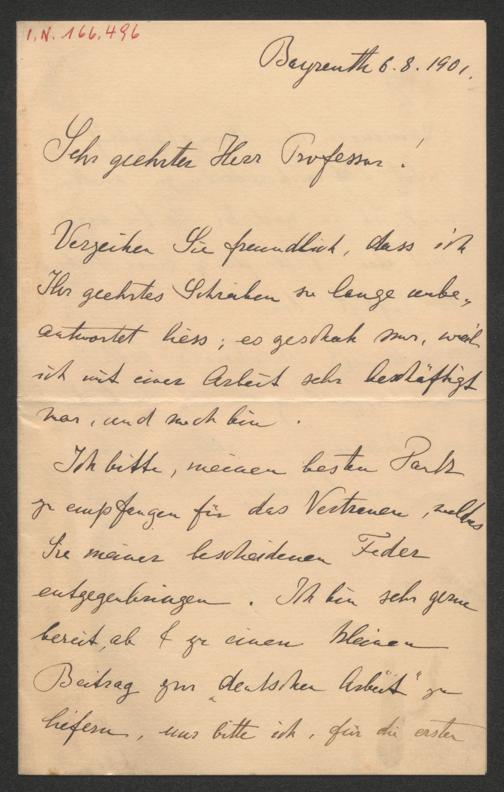 I.N. 166.496
Bayreuth 6.8.1901.
Sehr geehrter Herr Professor!
Verzeihen Sie freundlich, dass ich
Ihr geehrtes Schreiben so lange unbe„
antwortet liess; es geschah nur, weil
ich mit einer Arbeit sehr beschäftigt
war, und noch bin.
Ich bitte, meinen besten Dank
zu empfangen für das Vertrauen, welches
Sie meiner bescheidenen Feder
entgegenbringen. Ich bin sehr gerne
bereit, ab & zu einen kleinen
Beitrag zur „deutschen Arbeit" zu
liefern, nur bitte ich, für die ersten